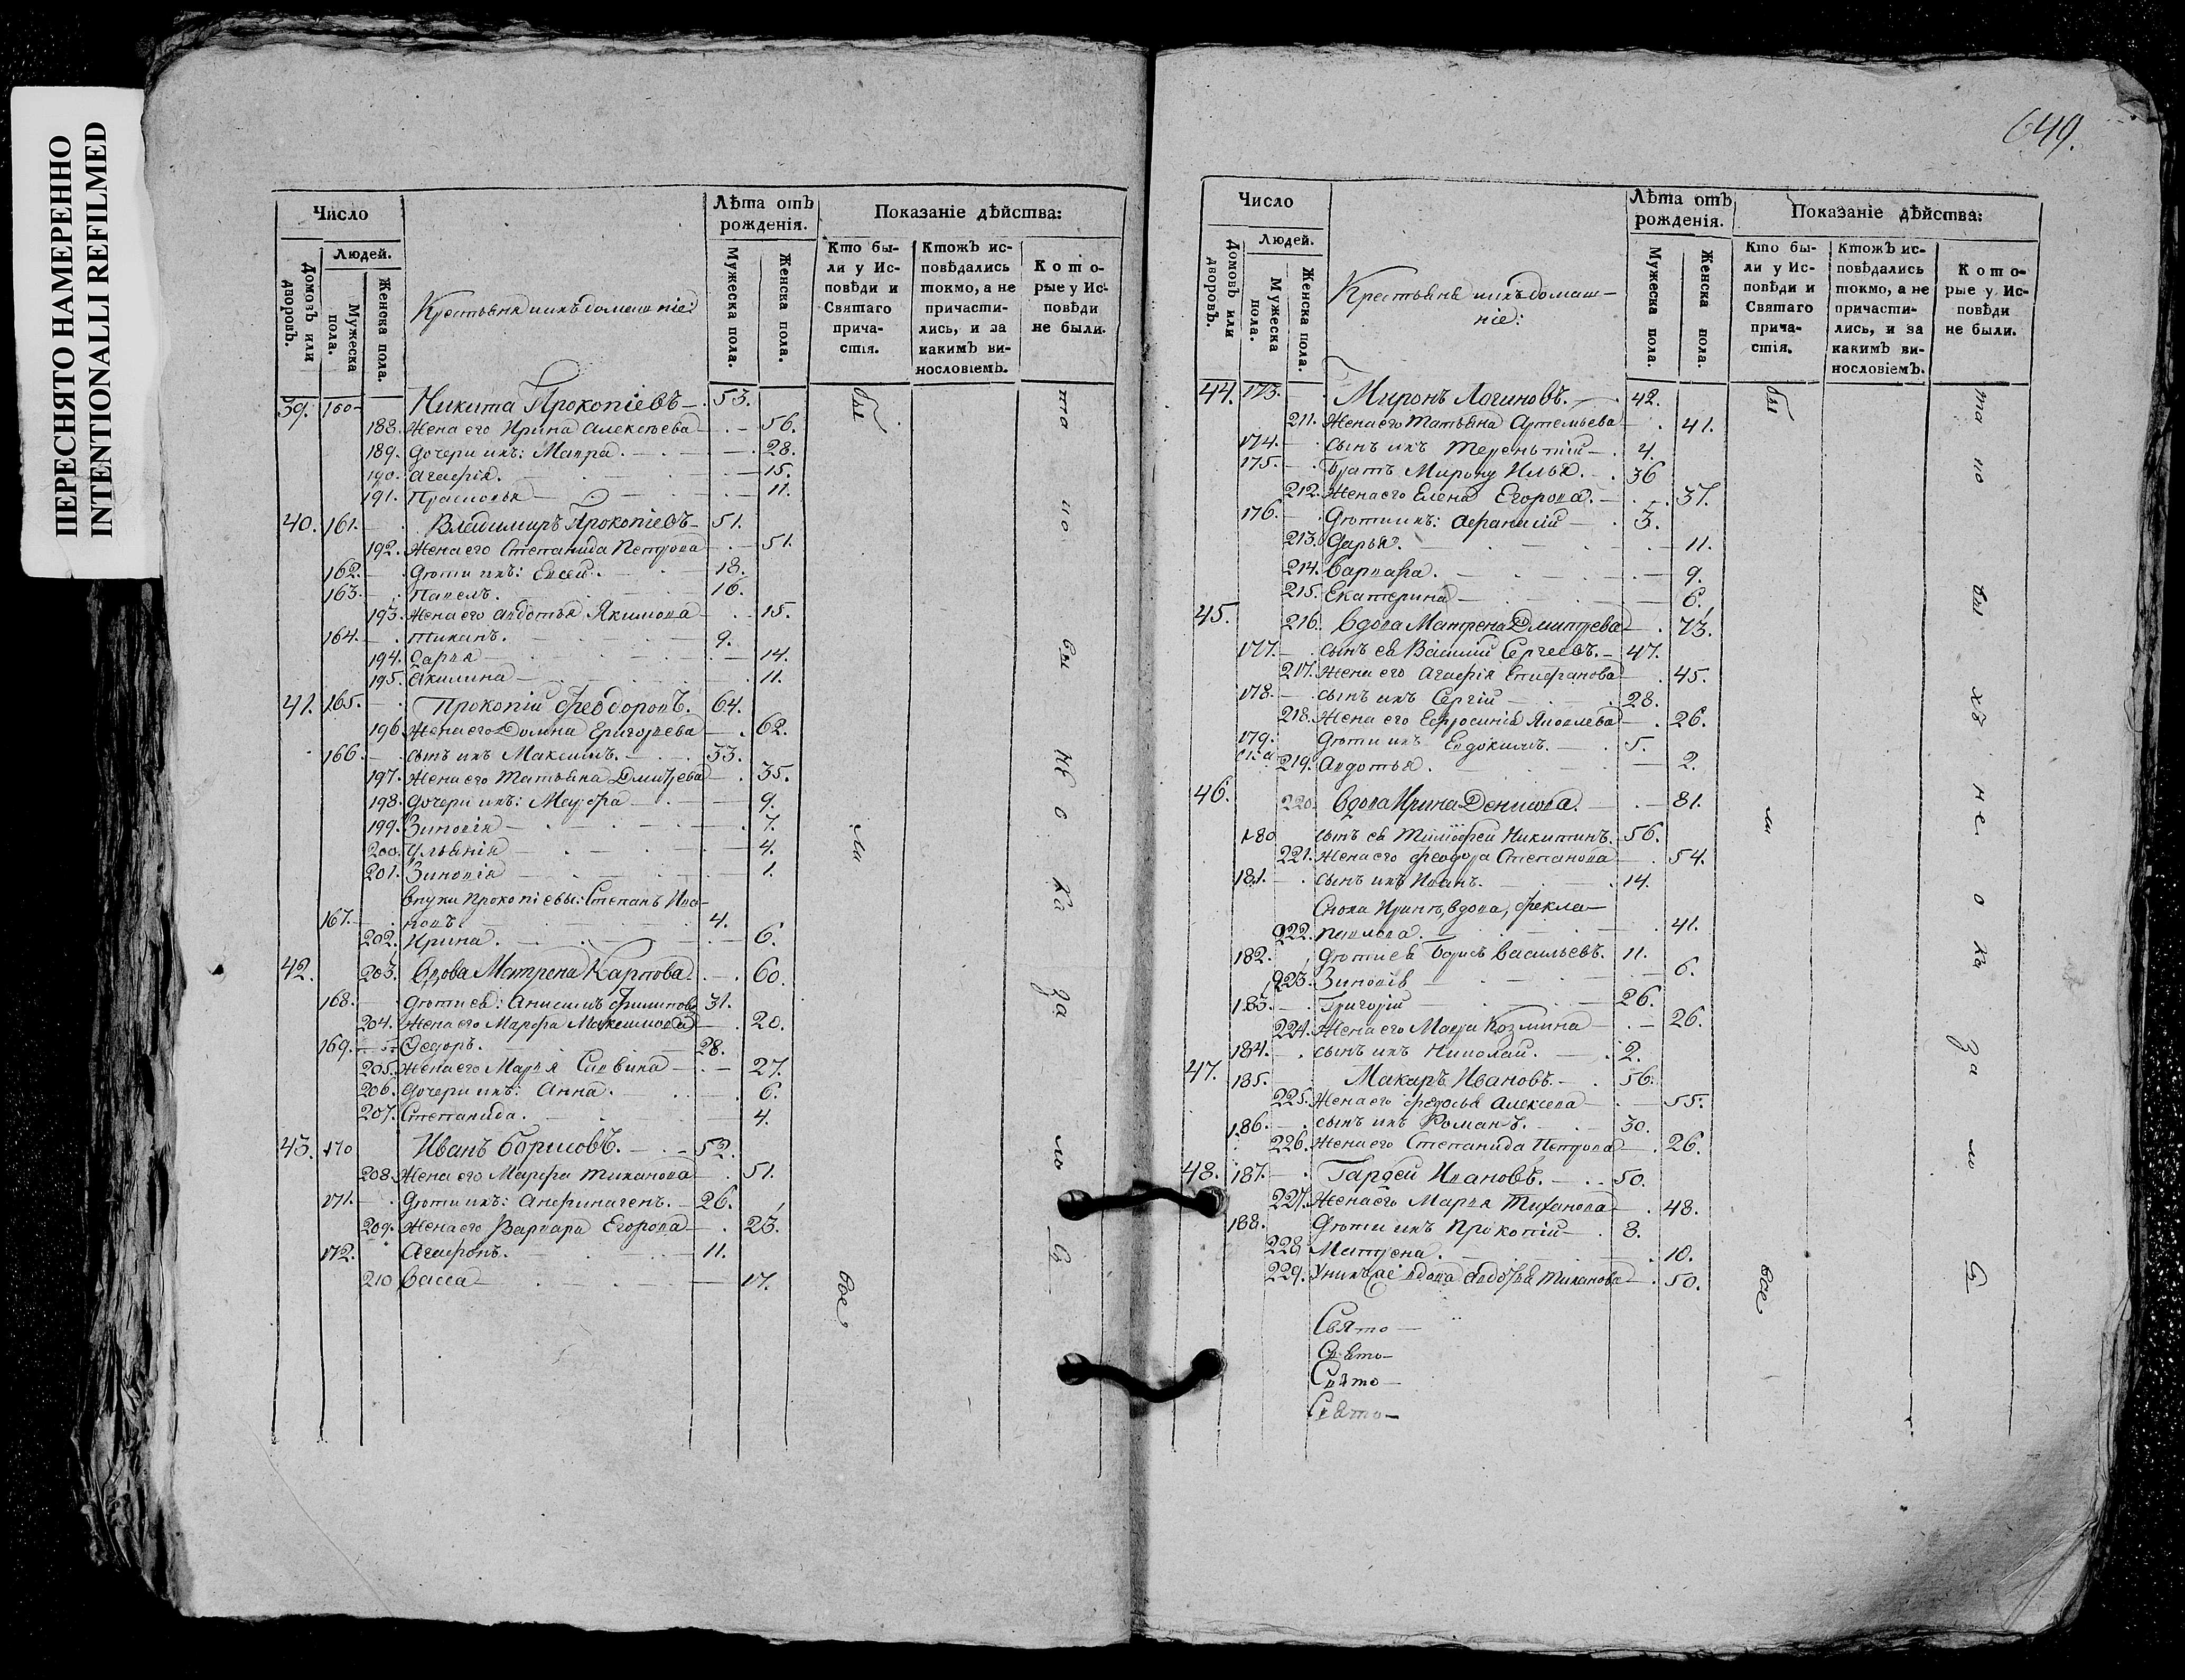 ПЕРЕСНЯТО НАМЕРЕННО
INTENTIONALLI REFILMED
Число
Людей.
Домовъ или дворовъ.
Мужеска пола.
Женска пола.
Крестьяне и ихъ домашніе:
Лѣта отъ рожденія.
Мужеска пола.
Женска пола.
Показаніе дѣйства:
Кто были у Исповѣди и Святаго причастія.
Ктожъ исповѣдались токмо, а не причастились, и за какимъ винословіемъ.
Которые у Исповѣди не были.
39. 160 Никита Прокопіевъ 53.
188. Жена его Ирина Алексѣева 56.
189. Дочери ихъ: Мавра 28.
190. Агафія 15.
191. Прасковья 11.
40. 161. Владимиръ Прокопіевъ 51.
192. Жена его Степанида Петрова 51.
162. Дѣти ихъ: Евсей 18.
163. Павелъ 16.
193. Жена его Авдотья Якимова 15.
164. Тиханъ 9.
194. Дарья 14.
195. Акилина 11.
41. 165. Прокопій Феодоровъ 64.
196. Жена его Домна Григорьева 62.
166. Сынъ ихъ Максимъ 33.
197. Жена его Татьяна Дмитрева 35.
198. Дочери ихъ: Марфа 9.
199. Зиновія 7.
200. Ульянія 4.
201. Зиновія 1.
Внуки Прокопіевы: Степанъ Ива-
167. новъ 4.
202. Ирина 6.
42. 203. Вдова Матрена Карпова 60.
168. Дѣти ея: Анисимъ Филиповъ 31.
204. Жена его Марфа Максимова 20.
169. Ѳедоръ 28.
205. Жена его Марья Саввина 27.
206. Дочери ихъ: Анна 6.
207. Степанида 4.
43. 170 Иванъ Борисовъ 52.
208. Жена его Марфа Тиханова 51.
171. Дѣти ихъ: Анфиногенъ 26.
209. Жена его Варвара Егорова 23.
172. Агафонъ 11.
210 Васса 17.
бы
ли
все
та
ко
вы
хъ
не
о
ка
за
ло
сь
649.
Число
Людей.
Домовъ или дворовъ.
Мужеска пола.
Женска пола.
Крестьяне и ихъ домаш-
ніе:
Лѣта отъ рожденія.
Мужеска пола.
Женска пола.
Показаніе дѣйства:
Кто были у Исповѣди и Святаго причастія.
Ктожъ исповѣдались токмо, а не причастились, и за какимъ винословіемъ.
Которые у Исповѣди не были.
44. 173. Миронъ Логиновъ 42.
211. Жена его Татьяна Артемьева 41.
174. Сынъ ихъ Терентій 4.
175. Братъ Мирону Илья 36
212. Жена его Елена Егорова 37.
176. Дѣти ихъ: Афанасій 3.
213. Дарья 11.
214. Варвара 9.
215. Екатерина 6.
45. 216. Вдова Матрена Дмитрева 73.
177. Сынъ ея Василій Сергеевъ 47.
217. Жена его Агафія Епифанова 45.
178. Сынъ ихъ Сергій 28.
218. Жена его Ефросинія Яковлева 26.
179. Дѣти ихъ Евдокимъ 5.
219. Авдотья 2.
46. 220. Вдова Ирина Денисова 81.
180 Сынъ ея Тимофей Никитинъ 56.
221. Жена его Феодора Степанова 54.
181. Сынъ ихъ Иванъ 14.
Сноха Иринѣ, вдова, Фекла
222. 41.
182. Дѣти ея Борисъ Васильевъ 11.
223. Зиновія 6.
183. Григорій 26.
224. Жена его Мавра Козмина 26.
184. Сынъ ихъ Николай 2.
47. 185. Макаръ Ивановъ 56.
225. Жена его Федосья Алексева 55.
186. Сынъ ихъ Романъ 30.
226. Жена его Степанида Петрова 26.
48. 187. Гардей Ивановъ 50.
227. Жена его Марья Тиханова 48.
188. Дѣти ихъ Прокопій 8.
228 Матрена 10.
229. У нихъ вдова Авдотья Тиханова 50.
Свято
Свято
Свято
Свято
бы
ли
все
та
ко
вы
хъ
не
о
ка
за
ло
сь